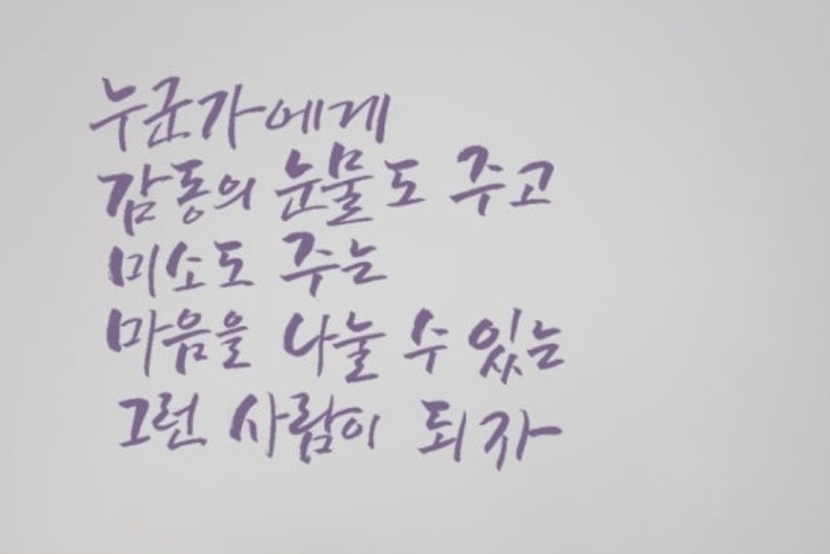 누군가에게
감동의 눈물도 주고
미소도 주는
마음을 나눌 수 있는
그런 사람이 되자